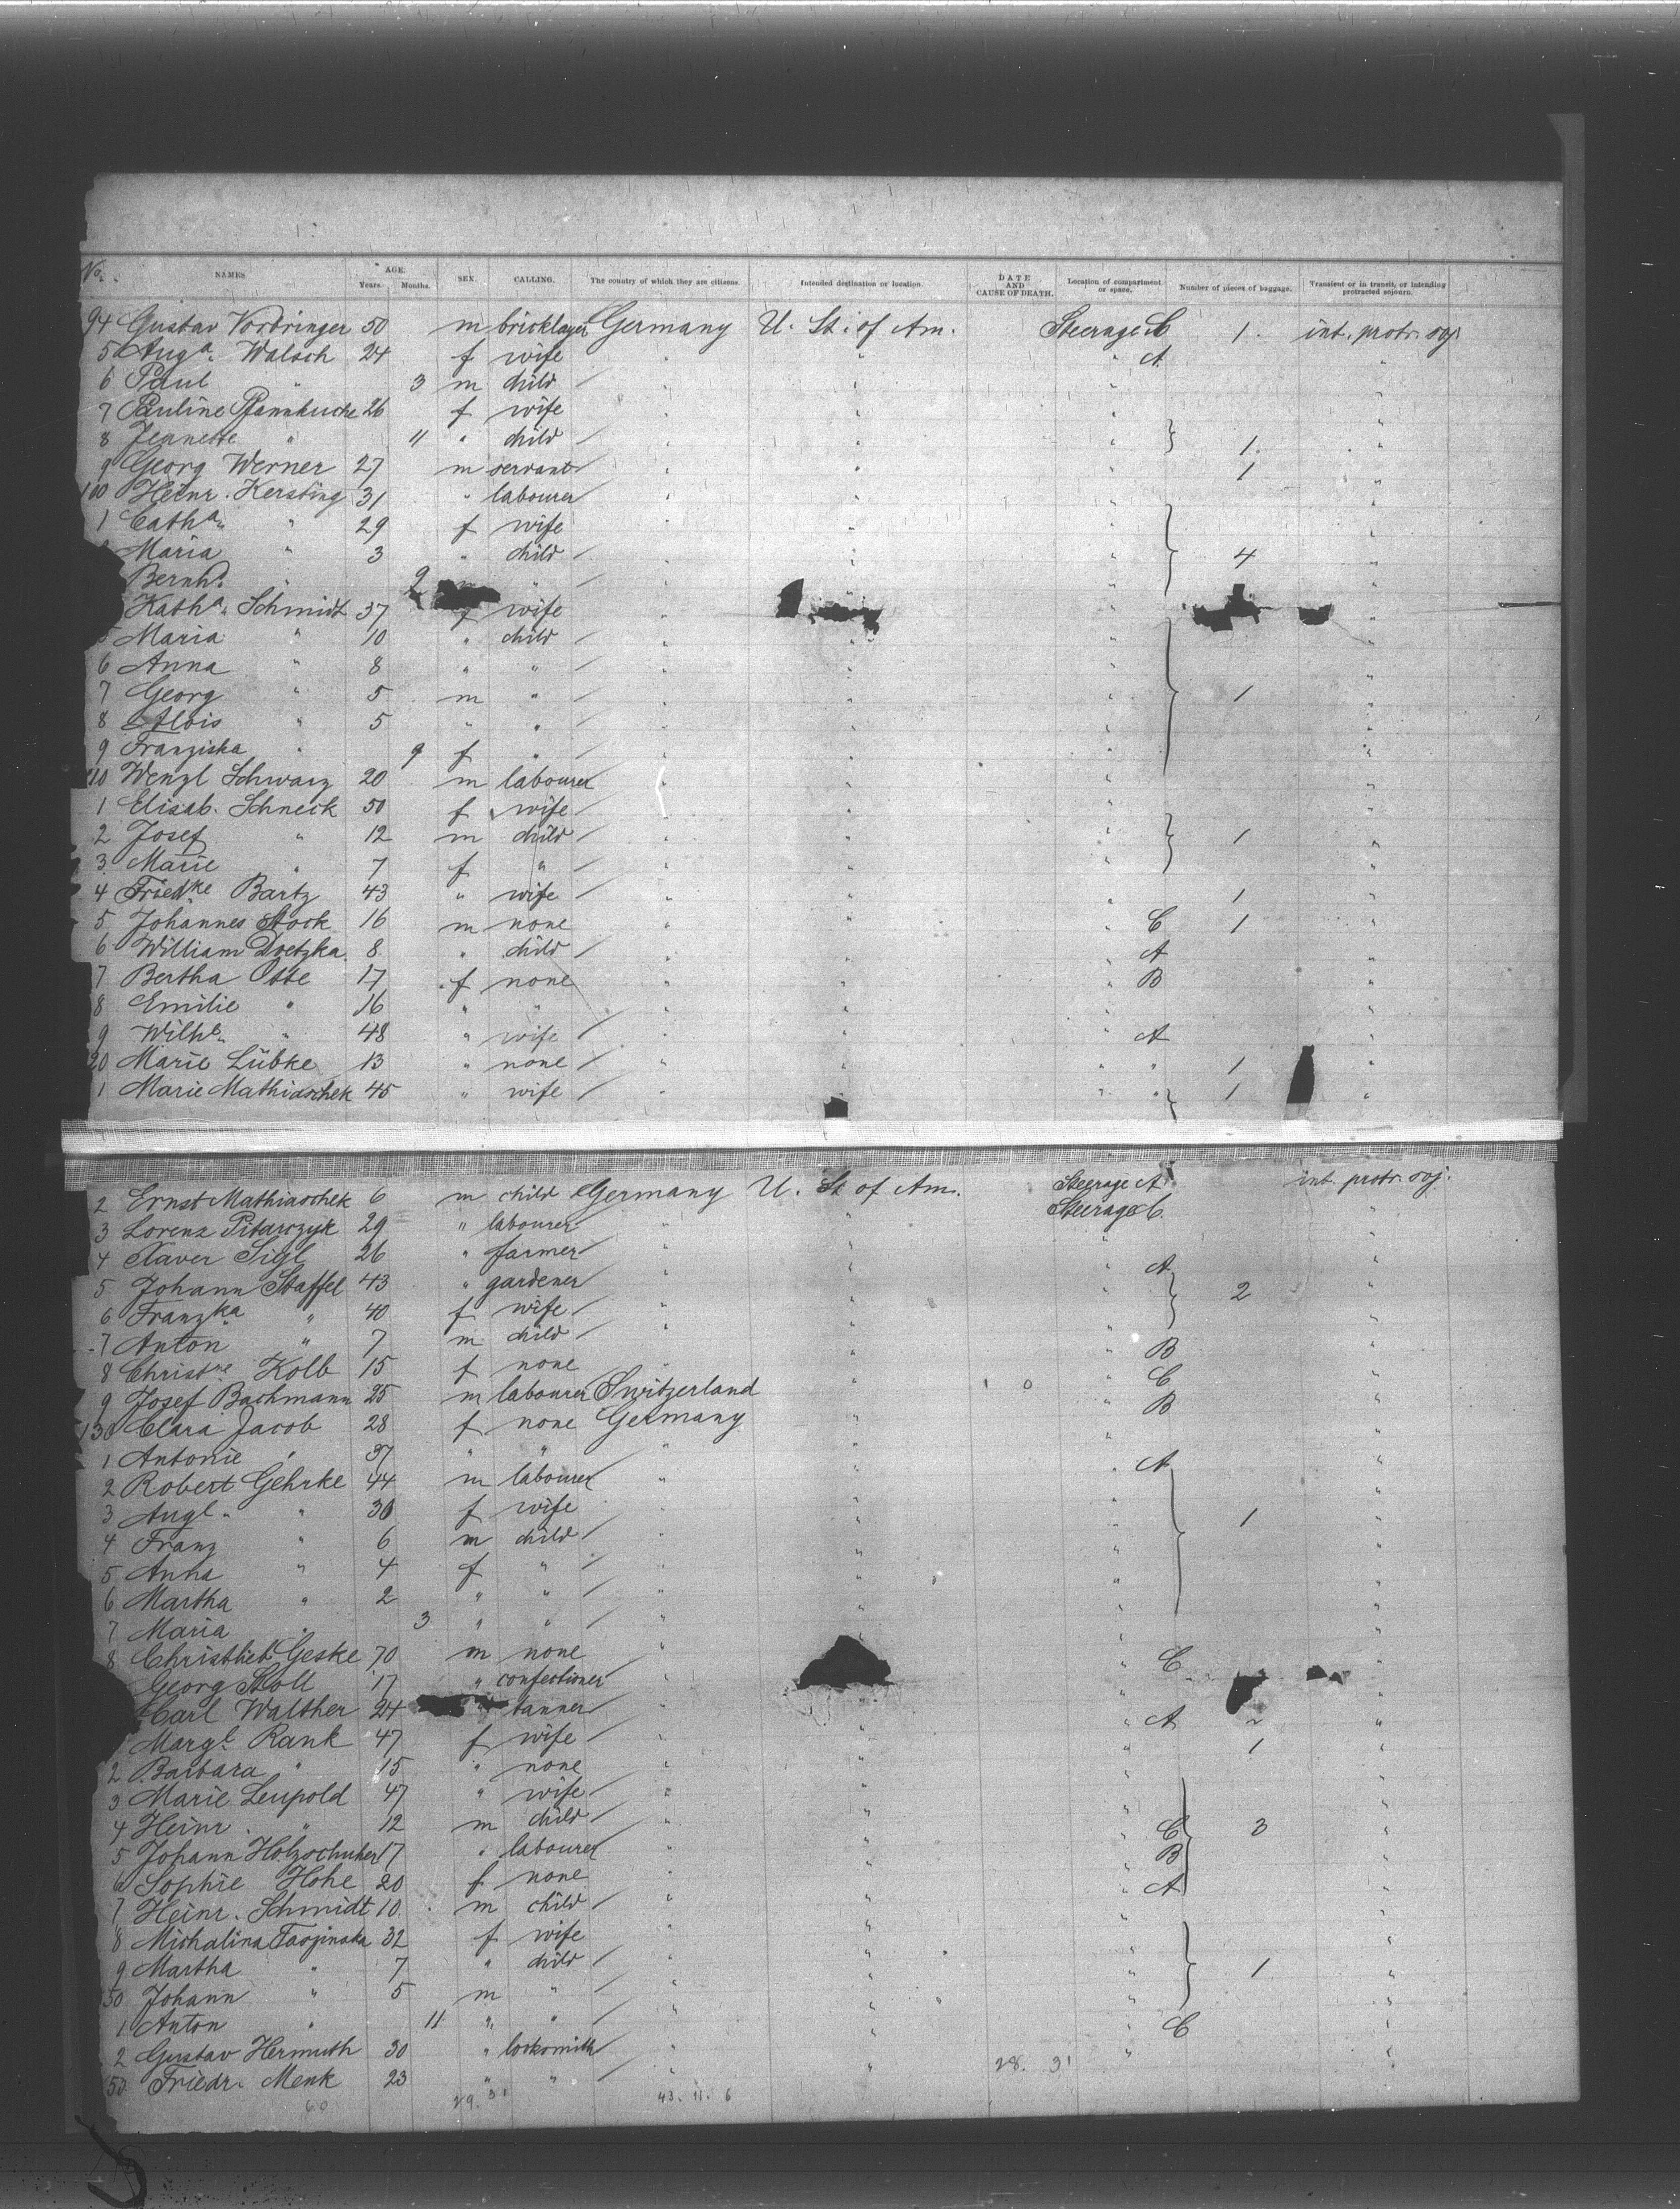 No. NAMES. AGE. Years. Months. SEX. CALLING. The country of which they are citizens. Intended destination or location. DATE AND CAUSE OF DEATH. Location of compartment or space. Number of pieces of baggage. Transient or in transit, or intending protracted sojourn.
94 Gustav Vordringer 50 m bricklayer Germany U. St. of Am. Steerage C 1. int. protr. soj.
5 Auga. Walsch 24 f wife " " " A "
6 Paul " 3 m child / " " "
7 Pauline Pfannkuche 26 f wife
8 Jeanette " 11 " child / " " " 1. "
9 Georg Werner 27 m servant / " " " 1 "
100 Heinr. Kersting 31 " labourer / " " " "
1 Catha. " 29 f wife " " " "
Maria " 3 " child / " " " 4 "
Bernhd. " 9 " / " " "
Katha. Schmidt 37 f wife " " "
5 Maria " 10 " child / " " " "
6 Anna " 8 " " / " " " "
7 Georg " 5 m " / " " " 1 "
8 Alois " 5 " " / " " " "
9 Franziska " 9 f " / " " " "
110 Wenzl Schwarz 20 m labourer " " " "
1 Elisab. Schneck 50 f wife / " " " "
2 Josef " 12 m child / " " " 1 "
3 Marie " 7 f " / " " " "
4 Friedke. Bartz 43 " wife / " " " 1 "
5 Johannes Stock 16 m none " " " C 1 "
6 William Dretzka 8 " child / " " " A "
7 Bertha Otte 17 f none " " " B "
8 Emilie " 16 " " " " " "
9 Wilhe. " 48 " wife / " " " A "
20 Marie Lübke 13 " none / " " " " 1 "
1 Marie Mathiaschek 45 " wife / " " " 1 "
2 Ernst Mathiaschek 6 m child Germany U. St. of Am. Steerage A int. protr. soj.
3 Lorenz Pitarczyk 29 " labourer " " Steerage C. "
4 Xaver Sigl 26 " farmer / " " " "
5 Johann Staffel 43 " gardener / " " " A "
6 Franzka. " 40 f wife / " " " 2 "
7 Anton " 7 m child / " " " "
8 Christne. Kolb 15 f none " " " B "
9 Josef Bachmann 25 m labourer Switzerland " " C "
130 Clara Jacob 28 f none Germany " " B "
1 Antonie " 37 " " " " " "
2 Robert Gehrke 44 m labourer " " " A "
3 Augl. " 30 f wife " " " "
4 Franz " 6 m child / " " " 1 "
5 Anna " 4 f " / " " " "
6 Martha " 2 " " / " " " "
7 Maria " 3 " " / " " " "
8 Christlieb Geske 70 m none " " "
Georg Stoll 17 " confectioner " " C
Carl Walther 24 " tanner / " " "
Margt. Rank 47 f wife / " " " A "
2 Barbara " 15 " none " " " 1 "
3 Marie Leupold 47 " wife / " " " "
4 Heinr. " 12 m child / " " " "
5 Johann Holzschuher 17 " labourer " " " C 3 "
6 Sophie Hohe 20 f none " " " B "
7 Heinr. Schmidt 10 m child / " " " A "
8 Michalina 32 f wife " " "
9 Martha " 7 " child / " " " "
50 Johann " 5 m " / " " " 1 "
1 Anton " 11 " " / " " " "
2 Gustav Hermuth 30 " locksmith / " " " C "
53 Friedr. Menk 23 " " / " " " "
28. 31
60 29. 31 43. 11. 6